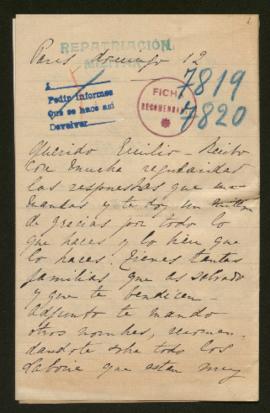 REPATRIACIÓN
MILITAR
Paris domingo 12
A
Pedir informes
Que se hace así
Devolver
FICHA
RECOMENDADO
7819
7820
Querido Emilio - Recibo
con mucha regularidad
las respuestas que me
mandas y te doy un millon
de gracias por todo lo
que haces y lo bien que
lo haces. Tienes tantas
familias que as salvado
y que te bendicen
adjunto te mando
otros nombres,
todo los
que estan muy